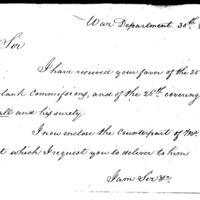 War Department 30th
Sir
I have received your favor of the 25
lank Commissions, and of the 26th covering
all and his surety.
I now enclose the Counterpart of Mr.
t which I request you to deliver to him
I am Sir &c.